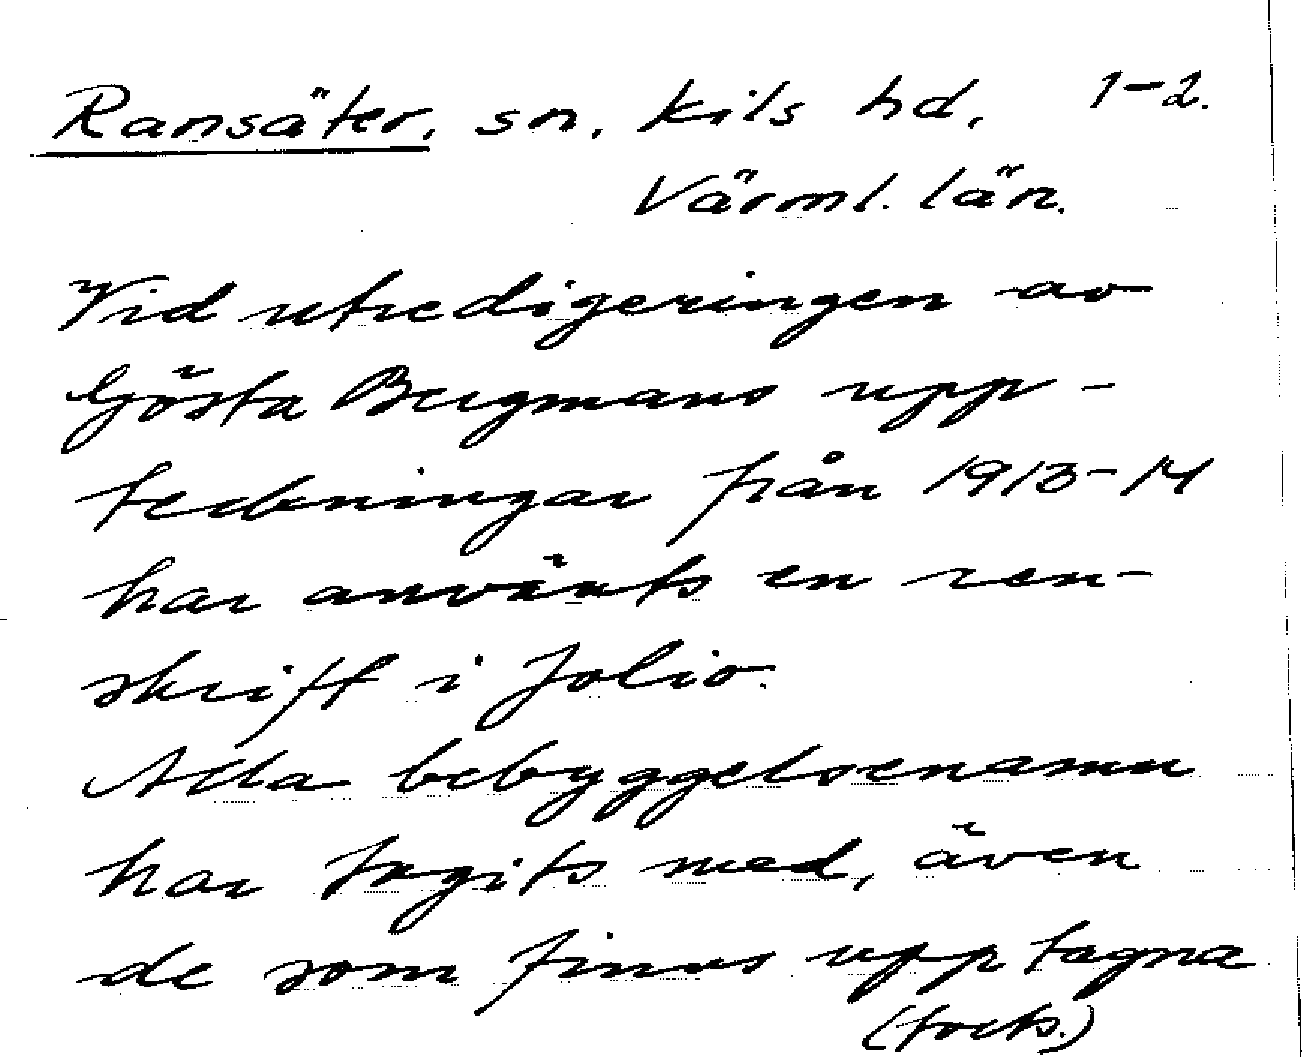 Ransäter, sn, Kils hd, 1-2.
Värml. län.
Vid utredigeringen av
Gösta Bergmans upp-
teckningar från 1913-14
har använts en ren-
skrift i folio.
Alla bebyggelsenamn
har tagits med, även
de som finns upptagna
(forts.)